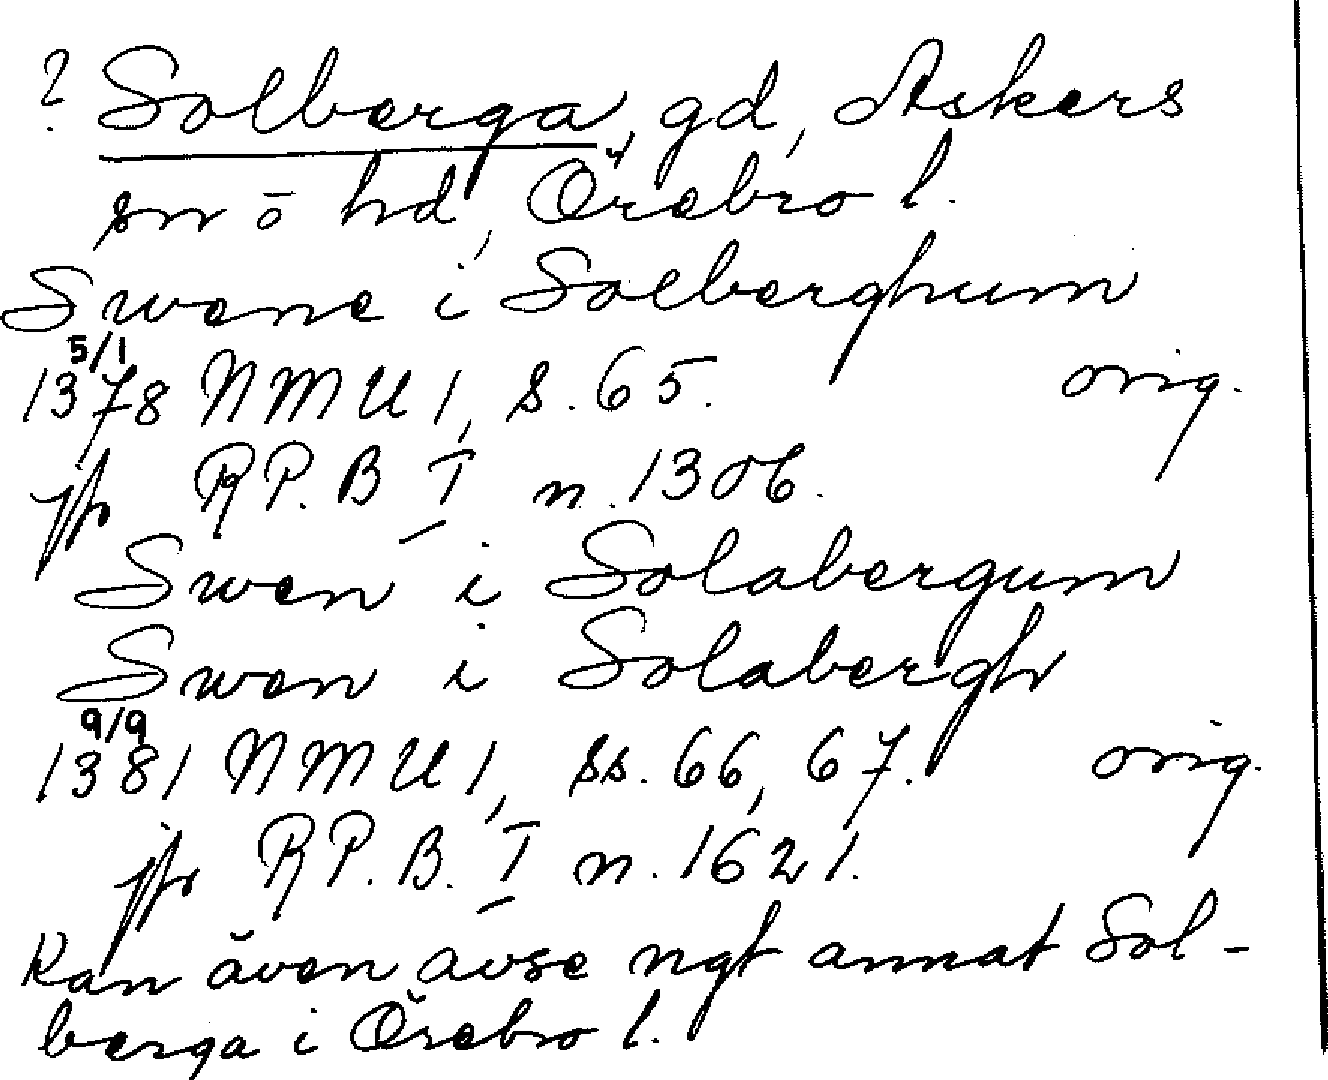 ? Solberga, gd, Askers
sn o hd, Örebro l.
Swene i Solberghum
5/1
1378 NMU 1, s. 65. orig.
jfr RP. B I n. 1306.
Swen i Solabergum
Swen i Solabergh
9/9
1381 NMU 1, ss. 66, 67. orig.
jfr RP. B. I n. 1621.
Kan även avse ngt annat Sol-
berga i Örebro l.